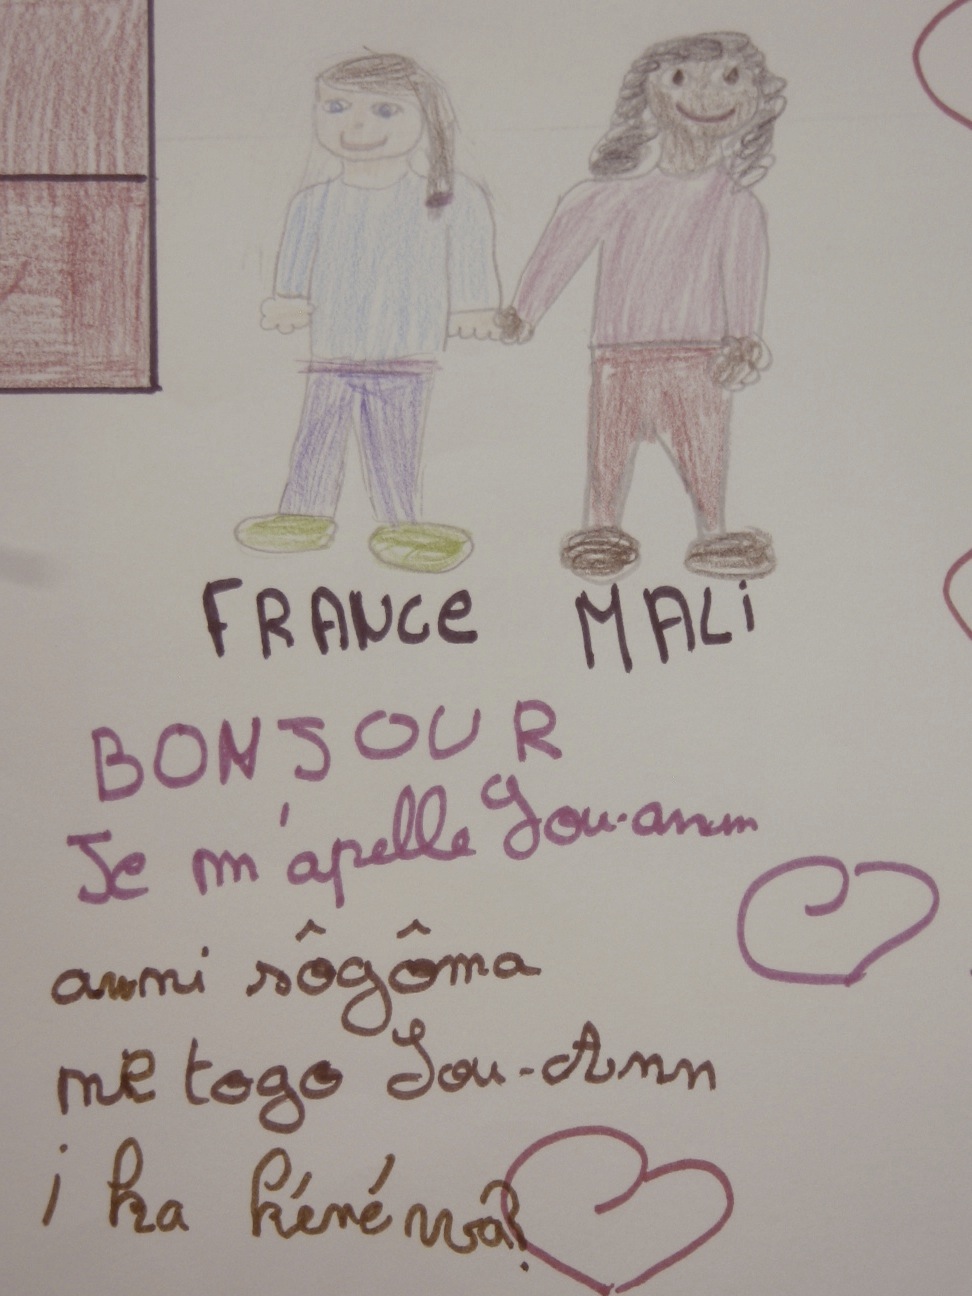 FRANCE MALi
BONJOUR
Je m'apelle Lou-ann
anni sôgôma
me togo Lou-Ann
i ka kéné wa?